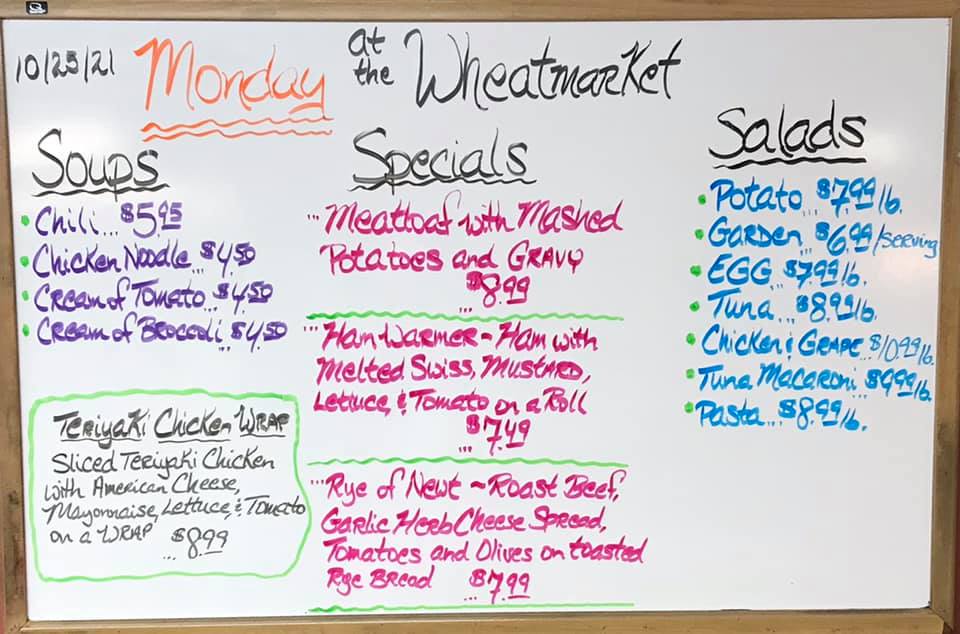 10/25/21 Monday at the Wheatmarket
Soups
Chili... $5.95
Chicken Noodle... $4.50
Cream of Tomato... $4.50
Cream of Broccoli... $4.50
Teriyaki Chicken Wrap
Sliced Teriyaki Chicken
with American Cheese,
Mayonnaise, Lettuce, & Tomato
on a Wrap ... $8.99
Specials
...Meatloaf with Mashed
Potatoes and Gravy
... $8.99
...Ham Warmer ~ Ham with
Melted Swiss, Mustard,
Lettuce, & Tomato on a Roll
... $7.49
...Rye of Newt ~ Roast Beef,
Garlic Herb Cheese Spread,
Tomatoes and Olives on toasted
Rye Bread ... $7.99
Salads
Potato... $7.99 lb.
Garden... $6.99/serving
Egg... $7.99 lb.
Tuna... $8.99 lb.
Chicken & Grape... $10.99 lb.
Tuna Macaroni... $9.99 lb.
Pasta... $8.99 lb.